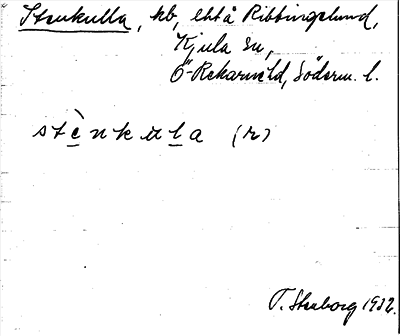 Stenkulla, kb, ehtå Ribbingelund,
Kjula sn,
Ö-Rekarneld, Söderm. l.
stènkula (r)
T. Stenborg 1932.